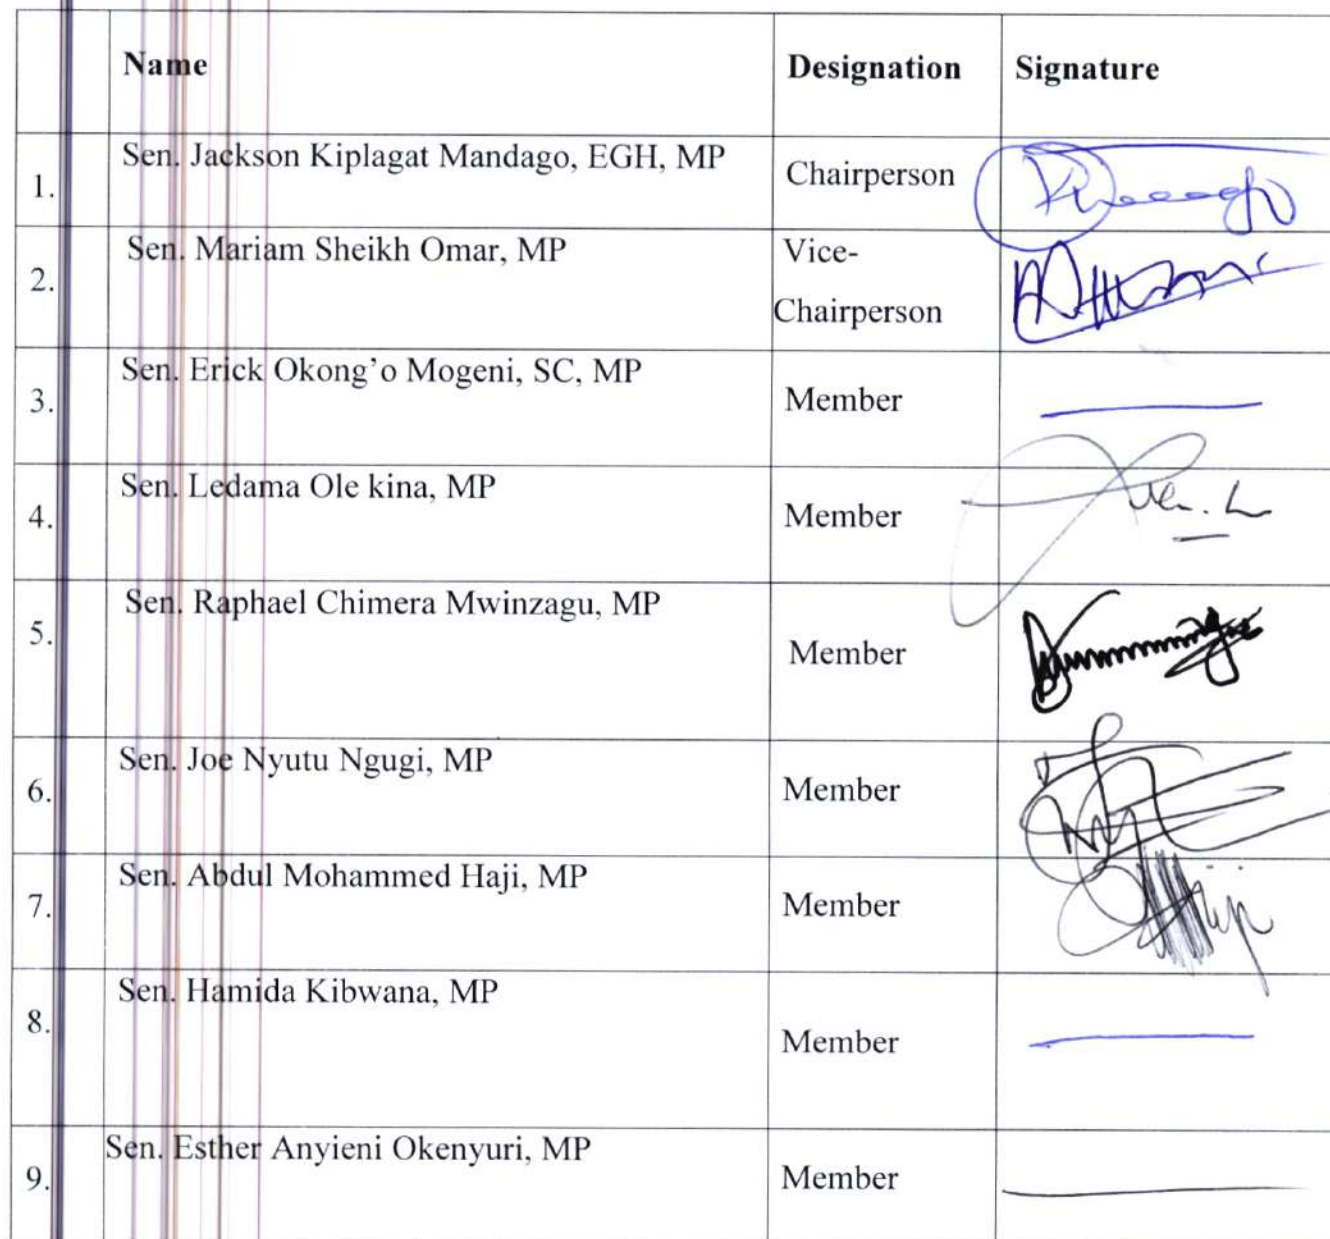 Name Designation Signature
1. Sen. Jackson Kiplagat Mandago, EGH, MP Chairperson
2. Sen. Mariam Sheikh Omar, MP Vice-
Chairperson
3. Sen. Erick Okong’o Mogeni, SC, MP Member
4. Sen. Ledama Ole kina, MP Member
5. Sen. Raphael Chimera Mwinzagu, MP Member
6. Sen. Joe Nyutu Ngugi, MP Member
7. Sen. Abdul Mohammed Haji, MP Member
8. Sen. Hamida Kibwana, MP Member
9. Sen. Esther Anyieni Okenyuri, MP Member